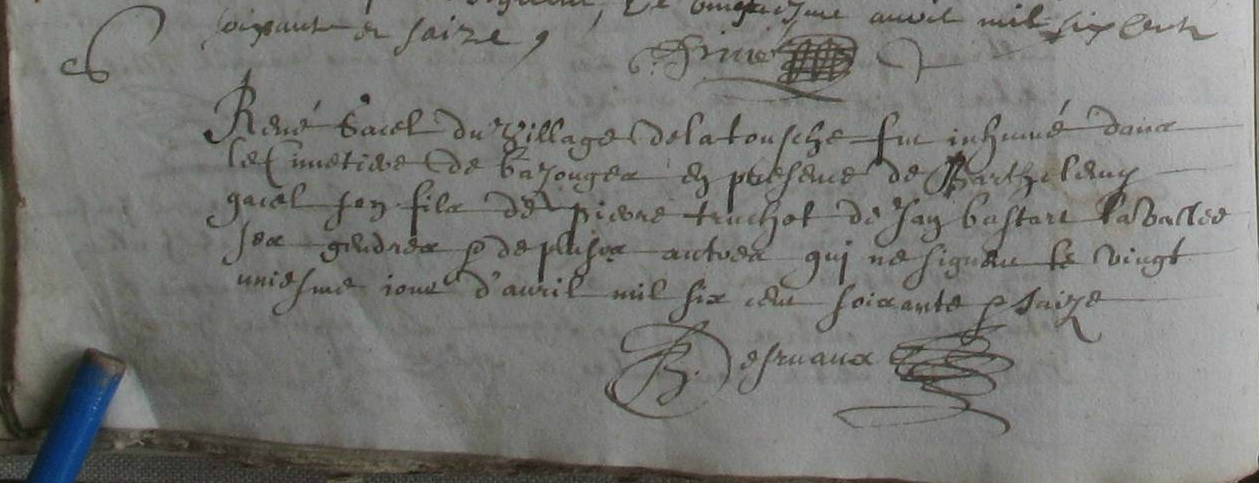 le vingtiesme auvril mil six cent
soixante et saize
René Gacel du village delatousche fut inhumé dans
le Cimetiere de bazouges en presence de Barthelemy
gacel son fils de pierre truchot de Jan bastart lavallee
ses gendres & de plusrs autres qui ne signent le vingt
uniesme iour d'auvril mil six cent soixante & saize
B. Desruaux